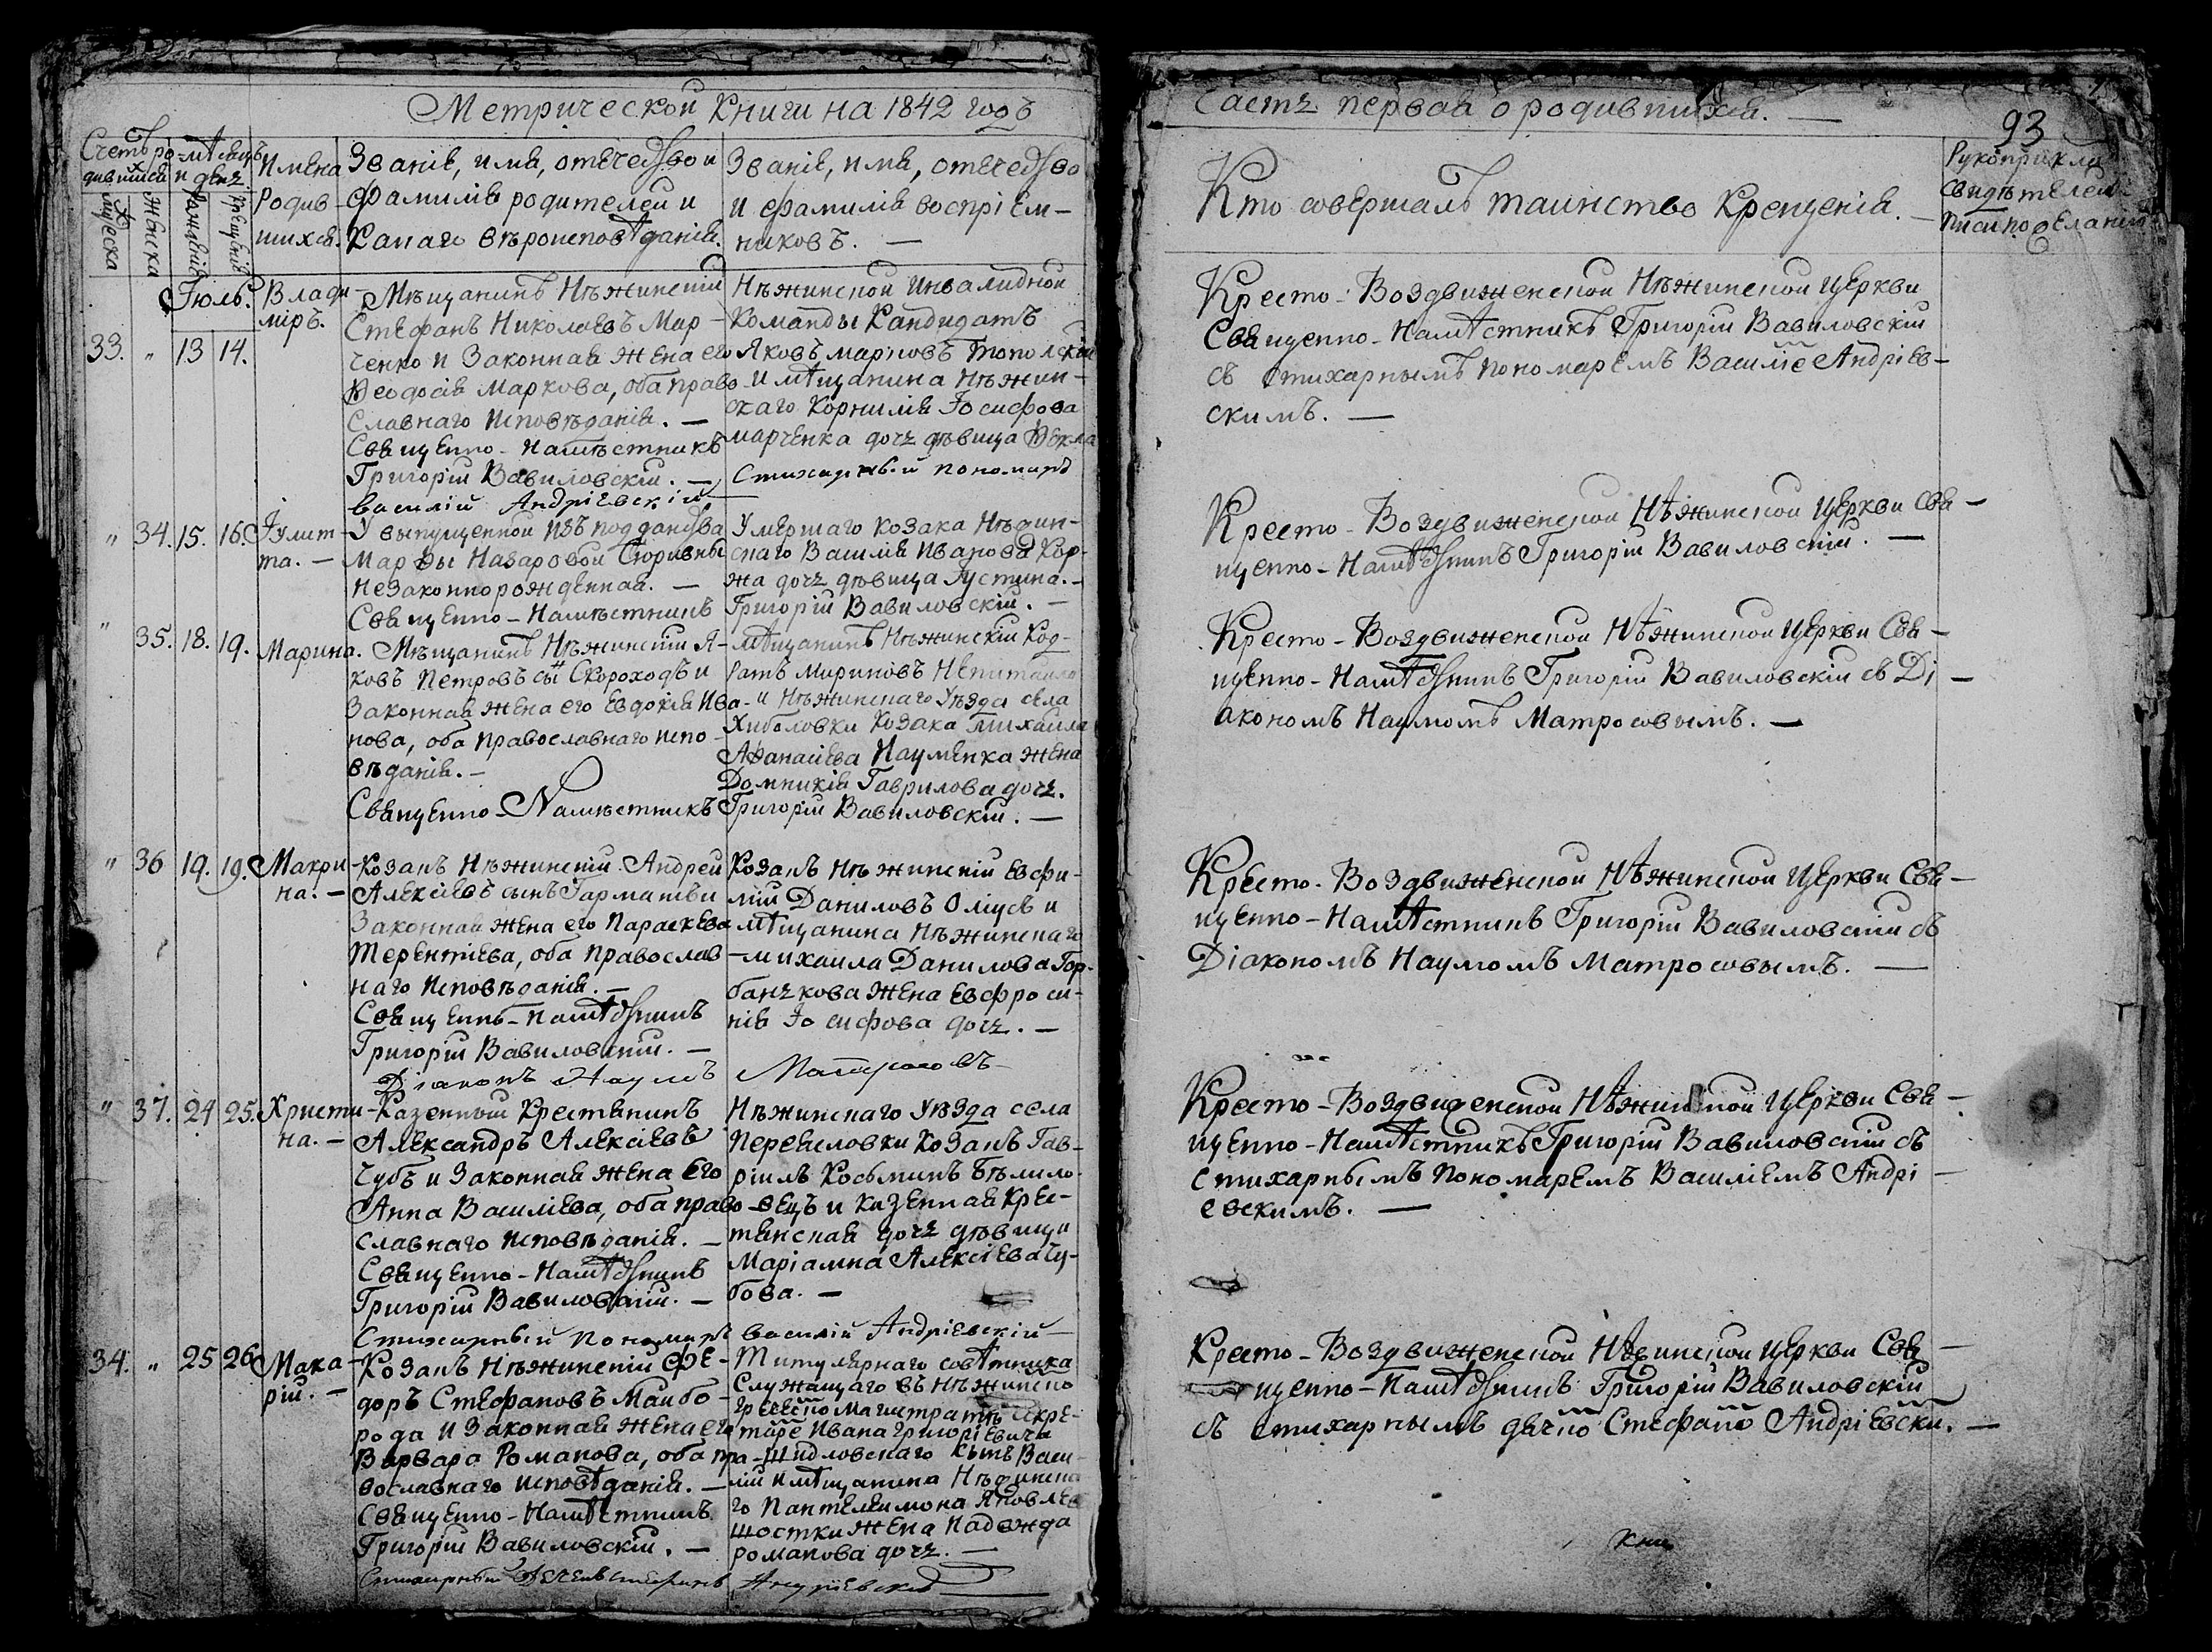 Метрической Книги на 1842 годъ
Счетъ ро-
дившися
мѣсяцъ
и день
Мужеска
Женска
Рожденія
Крещенія
Имена
Родив-
шихся.
Званіе, имя, отечество и
Фамилія родителей и
Какаго вѣроисповѣданія.
Званіе, имя, отечество
и фамилія воспріем-
никовъ. —
Іюль.
33. „ 13 14.
Влади-
міръ.
Мѣщанинъ Нѣжинскій
Стефанъ Николаевъ Мар-
ченко и Законная жена его
Ѳеодосія Маркова, оба право-
славнаго исповѣданія. —
Священно-намѣстникъ
Григорій Вавиловскій. —
Василій Андріевскій —
Нѣжинской Инвалидной
Команды Кандидатъ
Яковъ Марковъ Топольскій
и мѣщанина Нѣжин-
скаго Корнилія Іосифова
Марченка дочь дѣвица Ѳекла
Стихарный пономарь
„ 34. 15. 16.
Іулит-
та. —
У выпущенной изъ подданства
Марѳы Назаровой Сюривны
незаконнорожденная. —
Священно-Намѣстникъ
Умершаго козака Нѣжин-
скаго Василія Иванова Кор-
жа дочь дѣвица Іустина. —
Григорій Вавиловскій. —
„ 35. 18. 19.
Марина.
Мѣщанинъ Нѣжинскій Я-
ковъ Петровъ сы͞н Скороходъ и
Законная жена его Евдокія Ива-
нова, оба православнаго испо-
вѣданія. —
Священно-Намѣстникъ
Мѣщанинъ Нѣжинскій Код-
ратъ Мироновъ
и Нѣжинскаго Уѣзда села
Хибаловки Козака Михаила
Аѳанасіева Науменка жена
Домникія Гаврилова дочь.
Григорій Вавиловскій. —
„ 36 19. 19.
Макри-
на. —
Козакъ Нѣжинскій Андрей
Алексіевъ сынъ Гарматѣи
Законная жена его Параскева
Терентіева, оба православ-
наго исповѣданія. —
Священно-намѣстникъ
Григорій Вавиловскій. —
Діаконъ Наумъ
Козакъ Нѣжинскій Евфи-
мій Даниловъ Оліусъ и
мѣщанина Нѣжинскаго
Михаила Данилова Гор-
банькова жена Евфроси-
нія Іосифова дочь. —
Матросовъ
„ 37. 24 25.
Христи-
на. —
Казенный Крестянинъ
Александръ Алексіевъ
Чубъ и Законная жена его
Анна Василіева, оба право-
славнаго исповѣданія. —
Священно-Намѣстникъ
Григорій Вавиловскій. —
Стихарный пономарь
Нѣжинскаго Уѣзда села
Переясловки Козакъ Гав-
ріилъ Косьминъ Бѣлило-
вецъ и Казенная Крес-
тянская дочь дѣвица
Маріамна Алексіева Чу-
бова. —
Василій Андріевскій —
34. „ 25 26
Мака-
рій. —
Козакъ Нѣжинскій Фе-
доръ Стефановъ Майбо-
рода и Законная жена его
Варвара Романова, оба пра-
вославнаго исповѣданія. —
Священно-Намѣстникъ
Григорій Вавиловскій. —
Титулярнаго совѣтника
Служащаго въ Нѣжинско
Греческо Магистратѣ Секре-
таре Ивана Григоріевича
Шидловскаго сынъ Васи-
лій и мѣщанина Нѣжинска-
го Пантелеимона Яковлева
Шостки жена Надежда
Романова дочь. —
Андріевскій
Часть первая о родившихся. —
93
Кто совершалъ таинство Крещенія. —
Рукоприкла
свидѣтелей
писи по желанію
Кресто-Воздвиженской Нѣжинской церкви
Священно-Намѣстникъ Григорій Вавиловскій
съ стихарнымъ пономаремъ Василіе Андріев-
скимъ. —
Кресто-Воздвиженской Нѣжинской церкви Свя-
щенно-Намѣстникъ Григорій Вавиловскій. —
Кресто-Воздвиженской Нѣжинской церкви Свя-
щенно-Намѣстникъ Григорій Вавиловскій съ Ді-
акономъ Наумомъ Матросовымъ. —
Кресто-Воздвиженской Нѣжинской церкви Свя-
щенно-Намѣстникъ Григорій Вавиловскій съ
Діакономъ Наумомъ Матросовымъ. —
Кресто-Воздвиженской Нѣжинской церкви Свя-
щенно-Намѣстникъ Григорій Вавиловскій съ
стихарнымъ пономаремъ Василіемъ Андрі-
евскимъ. —
Кресто-Воздвиженской Нѣжинской церкви Свя-
щенно-Намѣстникъ Григорій Вавиловскій
съ стихарнымъ дячко Стефано Андріевски. —